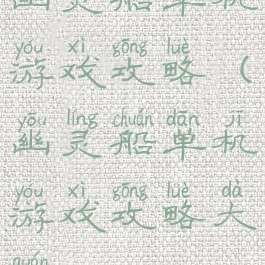 幽灵船单机
yóu xì gōng lüè
游戏攻略（
yōu líng chuán dān jī
幽灵船单机
yóu xì gōng lüè dà
游戏攻略大
quán